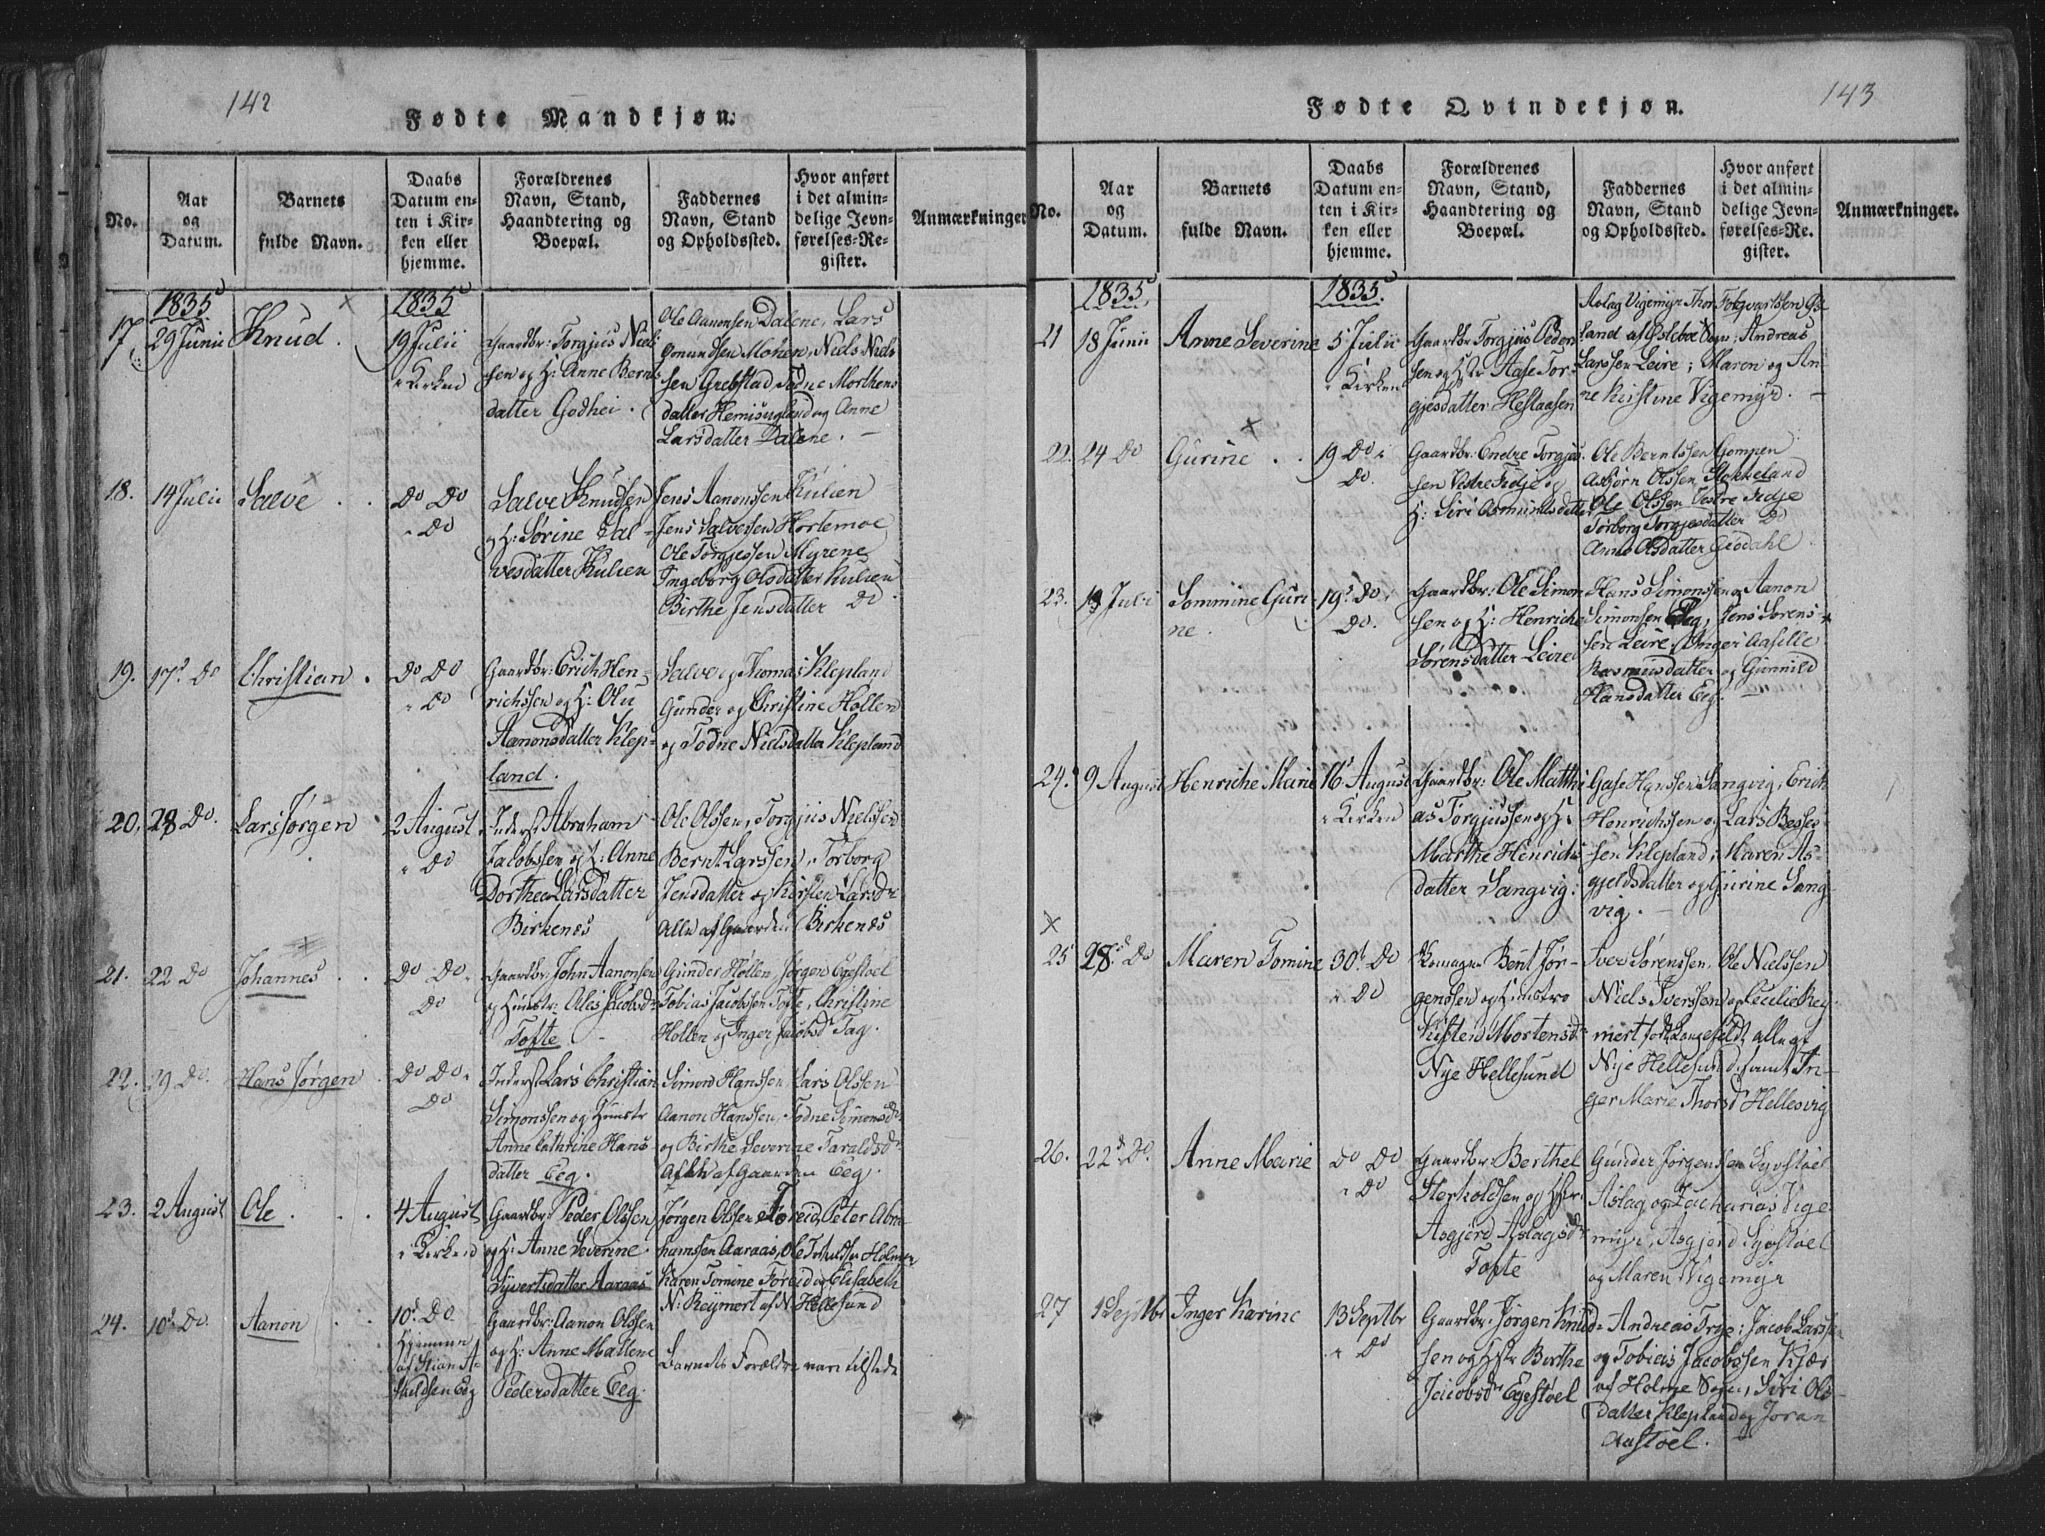 142
Fødte Mandkjøn.
No.
Aar
og
Datum.
Barnets
fulde Navn.
Daabs
Datum en-
ten i Kir-
ken eller
hjemme.
Forældrenes
Navn, Stand,
Haandtering og
Boepæl.
Faddernes
Navn, Stand
og Opholdssted.
Hvor anført
i det almin-
delige Jevn-
førelses-Re-
gister.
Anmærkninger
1835
1835
17
29 Junii
Knud.
19 Julii
i Kirken
Gaardbr: Torgjus Niel-
sen og H: Anne Bernts
datter Godhei.
Ole Aanonsen Dalene, Lars
Gmundsen Mohen, Niels Niels
sen Grebstad, Todne Morthens
datter Hemisugland og Anne
Larsdatter Dalene.
18.
14 Julii
Salve
Do Do
Do
Salve Knudsen
og H: Sørine Sal-
vesdatter Kulien
Jens Aanonssen Kulien
Jens Salvesen Hortemoe
Ole Torgjessen Myrene
Ingeborg Olsdatter Kulien
Birthe Jensdatter Do
19.
17d Do
Christian.
Do Do
Do
Gaardbr: Erich Hen-
richssen og H: Olu
Aanonsdatter Klep-
land.
Salve og Thomas Klepland
Gunder og Christine Hollen
og Todne Nielsdatter Klepland
20.
28 Do.
Lars Jørgen
2 August
Do
Inderst Abraham
Jacobssen og H: Anne
Dorthea Larsdatter
Birkenes
Ole Olssen, Torgjus Nielssen
Bernt Larssen, Torborg
Jensdatter og Kirsten Larsdr
Alle af Gaarden Birkenes
21.
22 Do
Johannes
Do Do
Do
Gaardbr. John Aanonsen
og Hustr: Ales Jacobsdr
Tofte
Gunder Hollen, Jørgen Egestøel
Tobias Jacobssen Tofte, Christine
Hollen og Inger Jacobsd Tag.
22.
29 Do.
Hans Jørgen
Do Do
Do
Inderst Lars Christian
Simonssen og Hustr
Anne Cathrine Hans-
datter Eeg.
Simon Hanssen, Lars Olsen
Aanon Hanssen, Todne Simonsdr
og Birthe Severine Taraldsdr
Alle af Gaarden Eeg.
23.
2 August
Ole
4 August
i Kirken
Gaardbr: Peder Olssen
og H: Anne Severine
Syvertsdatter Aaraas
Jørgen Olssen Føreid, Peter Abra-
hamssen Aaraas, Ole Holmen
Karen Tomine Føreid og Elisabeth
N: Reymert af N: Hellesund
24.
10d Do.
Aanon
10d Do
Hjemme
af Stian A-
Eeg
Gaardbr: Aanon Olssen
og H: Anne Mallene
Pedersdatter Eeg.
Barnets Forældre vare tilstede
143
Fødte Qvindekjøn.
No.
Aar
og
Datum.
Barnets
fulde Navn.
Daabs
Datum en-
ten i Kir-
ken eller
hjemme.
Forældrenes
Navn, Stand,
Haandtering og
Boepæl.
Faddernes
Navn, Stand
og Opholdssted.
Hvor anført
i det almin-
delige Jevn-
førelses-Re-
gister.
Anmærkninger.
1835
1835
21
18 Junii
Anne Severine
5 Julii
i Kirken
Gaardbr Torgjus Peder
sen og Hstr Aase Tor-
gjesdatter Hestaasen
Aslag Vigemyr Thor
land af Oslebøe Sogn; Andreas
Larssen Leire; Maren og An
ne Kirstine Vigemyr.
22.
24 Do
Gurine
19 Do
Do.
Gaardbr: Endre Torgjus
sen Vestre Tidje og
H: Siri Asmundsdatter
Ole Berntssen Gompen
Asbjørn Olssen Stokkeland
Ole Olssen Vestre Tidje
Torborg Torgjesdatter Do
Anne Olsdatter
23.
13 Juli
Tommine Guri
ne.
19d Do
Do.
Gaardbr: Ole Simon
sen og H: Henriche
Sørensdatter Leire
Hans Simonssen og Aanon
Simonsen Eeg, Jens Sørens-
sen Leire, Inger Aaselle
Rasmusdatter og Gunnild
Hansdatter Eeg.
24.
9 August
Henriche Marie
16d August
i Kirken
Gaardbr: Ole Matthi
as Torgjussen og H:
Marthe Henrichs
datter Sangvig.
Gase Hanssen Sangvig, Erich
Henrichssen og Lars Besses-
sen Klepland; Maren As-
gjeldsdatter og Gurine Sang-
vig.
25
28d Do
Maren Tomine
30t Do
Do
Bent Jør-
genssen og Hustro
Kirsten Mortensdr
Nye Hellesund
Iver Sørenssen, Ole Nielssen
Niels Iverssen og Cecilie Rey-
mert født Langfeldt, alle af
Nye Hellesund, samt In-
ger Marie Thorsd Hellesvig
26.
22d Do.
Anne Marie
Do Do
Do
Gaardbr: Berthel
Sterkoldsen og Hstr:
Asgjerd Aslagsdr
Tofte
Gunder Jørgenssen Egestøel
Aslag og Zacharias Vige-
myr, Asgjerd Egestøel
og Maren Vigemyr
27
1 Septbr
Inger Karine
13 Septbr
Do
Gaardbr. Jørgen Knud-
sen og Hstr Birthe
Jacobsdr Egestøel
Andreas Tryg; Jacob Larssen
og Tobias Jacobssen Kjær
af Holme Sogn, Siri Ols-
datter Klepland og Joran
Aastøel.